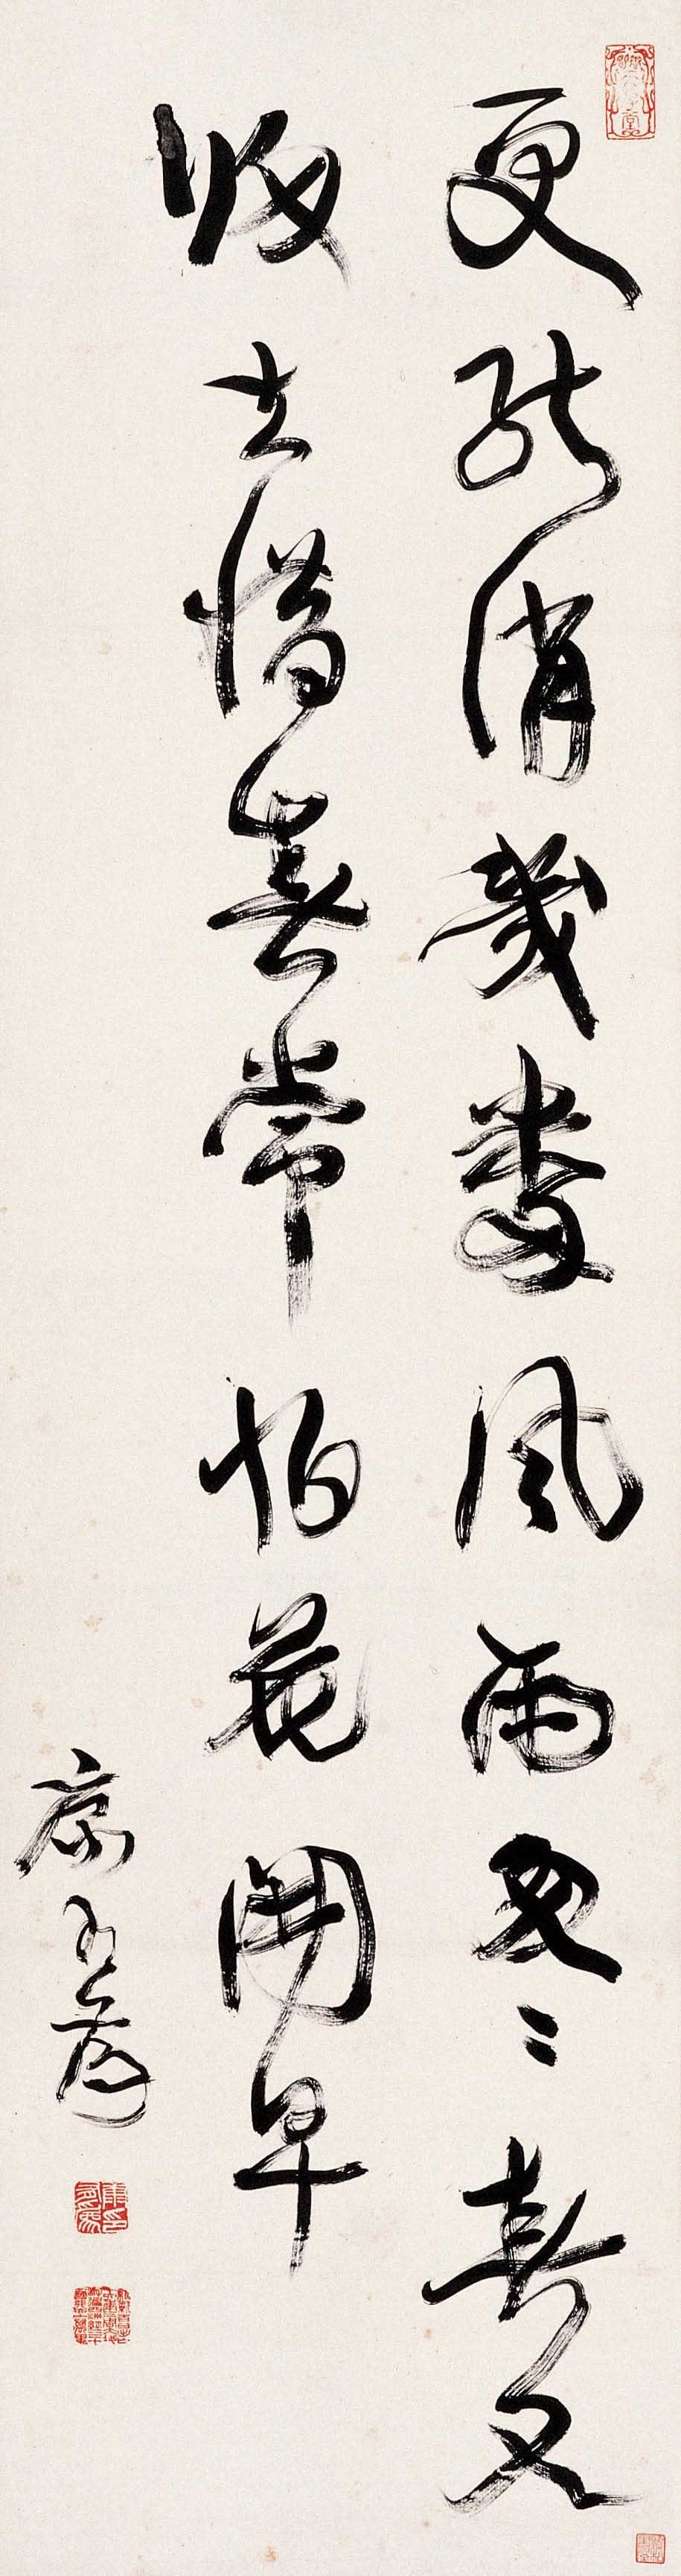 更能消幾番風雨匆〻春又
歸去惜春常怕花開早
康有為
康有為印